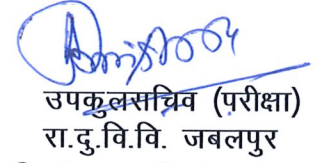 उपकुलसचिव (परीक्षा)
रा.दु.वि.वि. जबलपुर